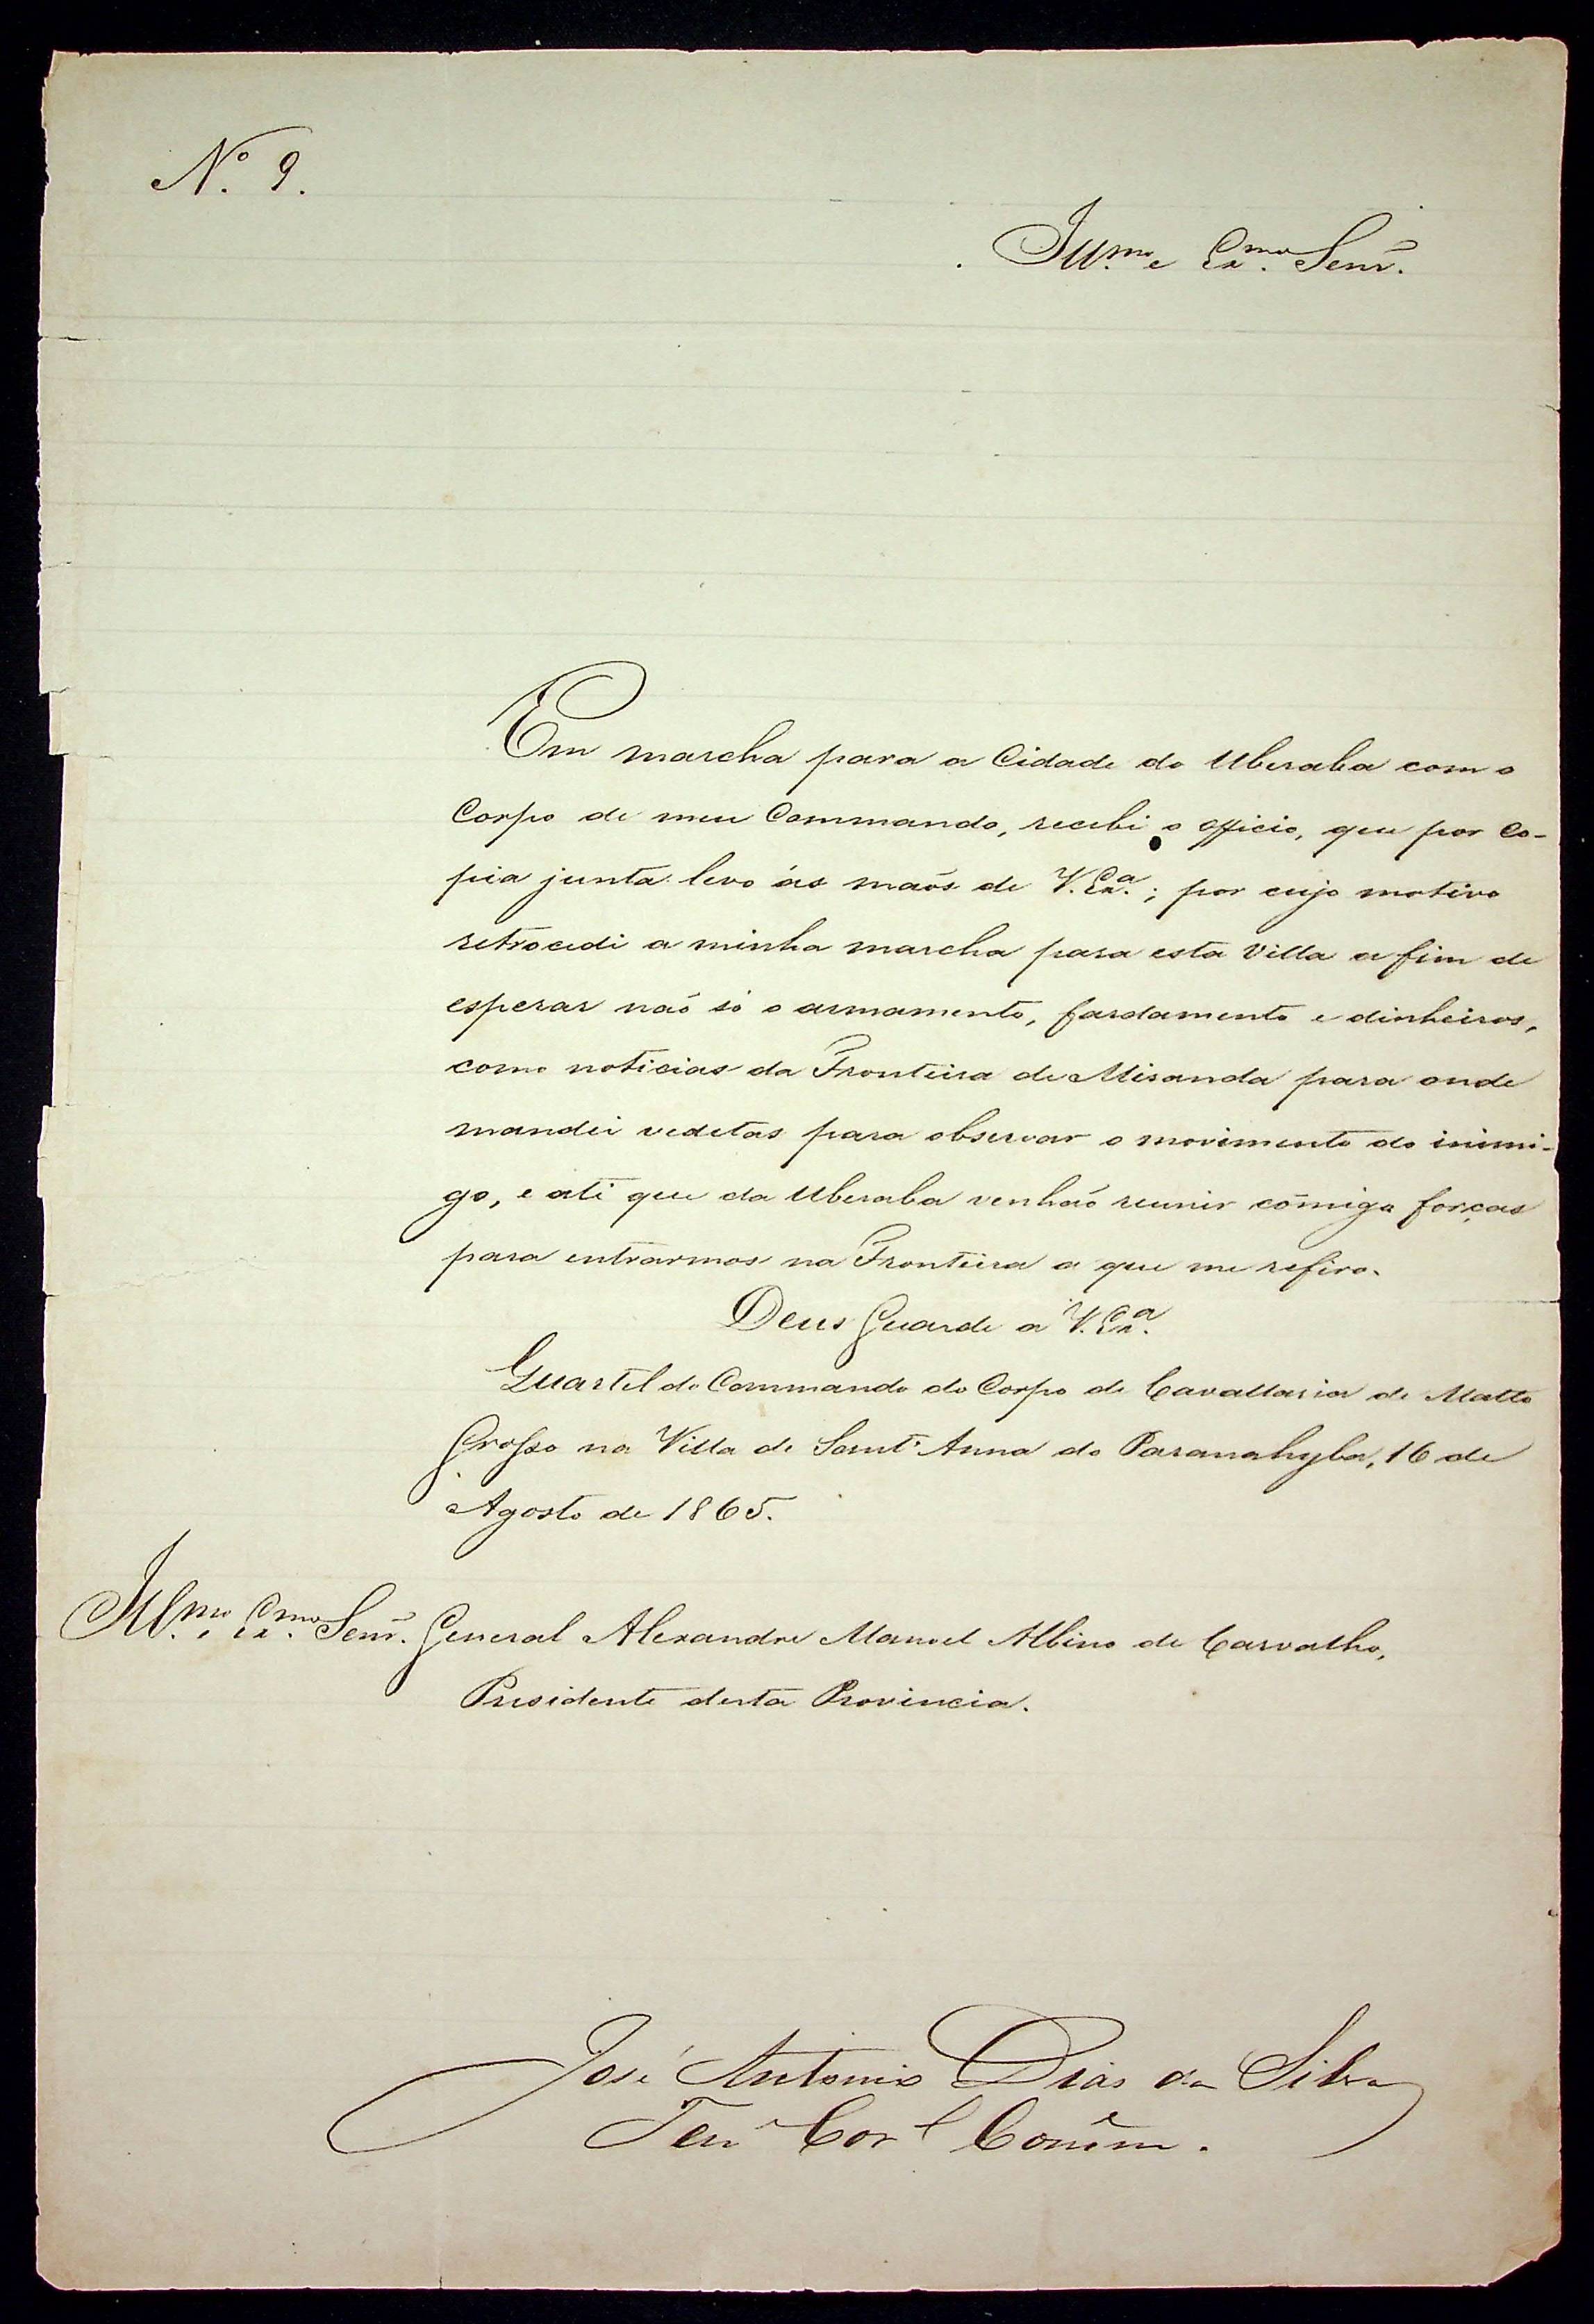 Nº. 9.
Illmo. e Exmo. Senr.
Em marcha para a Cidade do Uberaba com o
Corpo de meu Commando, recebi o officio, que por co-
pia junta levo ás maõs de V. Exa.; por cujo motivo
retrocedi a minha marcha para esta Villa a fim de
esperar naõ só o armamento, fardamento e dinheiros,
como noticias da Fronteira de Miranda para onde
mandei vedetas para observar o movimento do inimi-
go, e até que da Uberaba venhaõ reunir cõmigo forças
para entrarmos na Fronteira a que me refiro.
Deus Guarde a V. Exa.
Quartel do Commando do Corpo de Cavallaria de Matto
Grosso na Villa de Sant'Anna do Paranahyba, 16 de
Agosto de 1865.
Illmo. e Exmo. Senr. General Alexandre Manoel Albino de Carvalho,
Presidente desta Provincia.
José Antonio Dias da Silva
Ten Corl Comm.